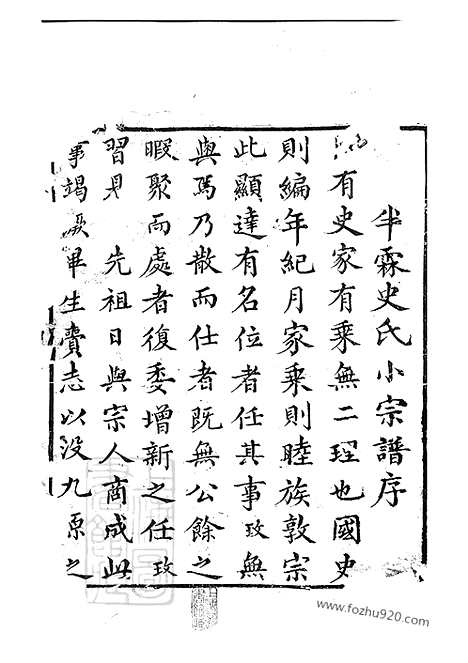 半霖史氏小宗譜序
有史家有乘無二理也國史
則編年紀月家乘則睦族敦宗
此顯達有名位者任其事攷無
與焉乃散而仕者既無公餘之
暇聚而處者復委增新之任攷
習見　先祖日與宗人商成此
事竭厥畢生賫志以没九原之
www.fozhu920.com